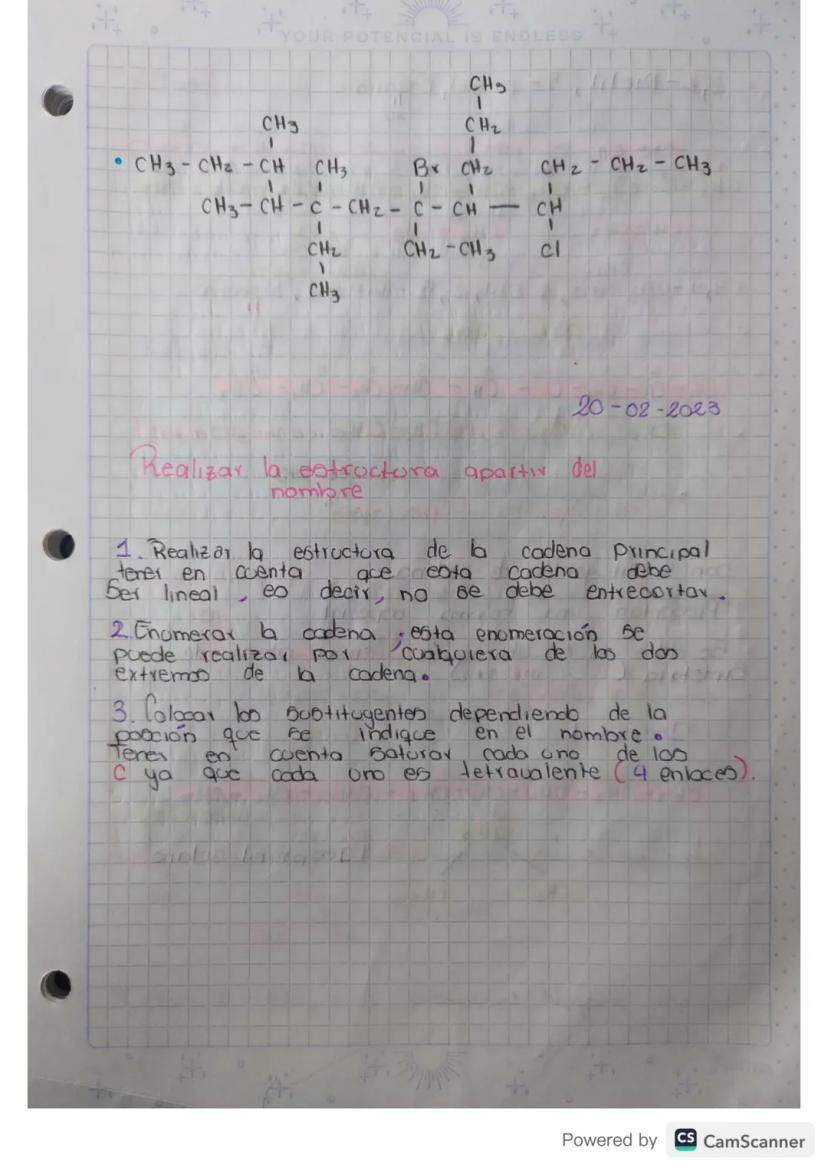 YOUR POTENCIAL IS ENDLESS
CH3
CH3 CH2
• CH3 - CH2 - CH CH3 Br CH2 CH2 - CH2 - CH3
CH3 - CH - C - CH2 - C - CH — CH
CH2 CH2 - CH3 Cl
CH3
20-02-2023
Realizar la estructura apartir del
nombre
1. Realizar la estructura de la cadena principal
tener en cuenta que esta cadena debe
ser lineal, es decir, no se debe entrecortar.
2. Enumerar la cadena, esta enumeración se
puede realizar por cualquiera de los dos
extremos de la cadena.
3. Colocar los sustituyentes dependiendo de la
posción que se indique en el nombre.
Tener en cuenta saturar cada uno de los
C ya que cada uno es tetravalente (4 enlaces).
Powered by CS CamScanner